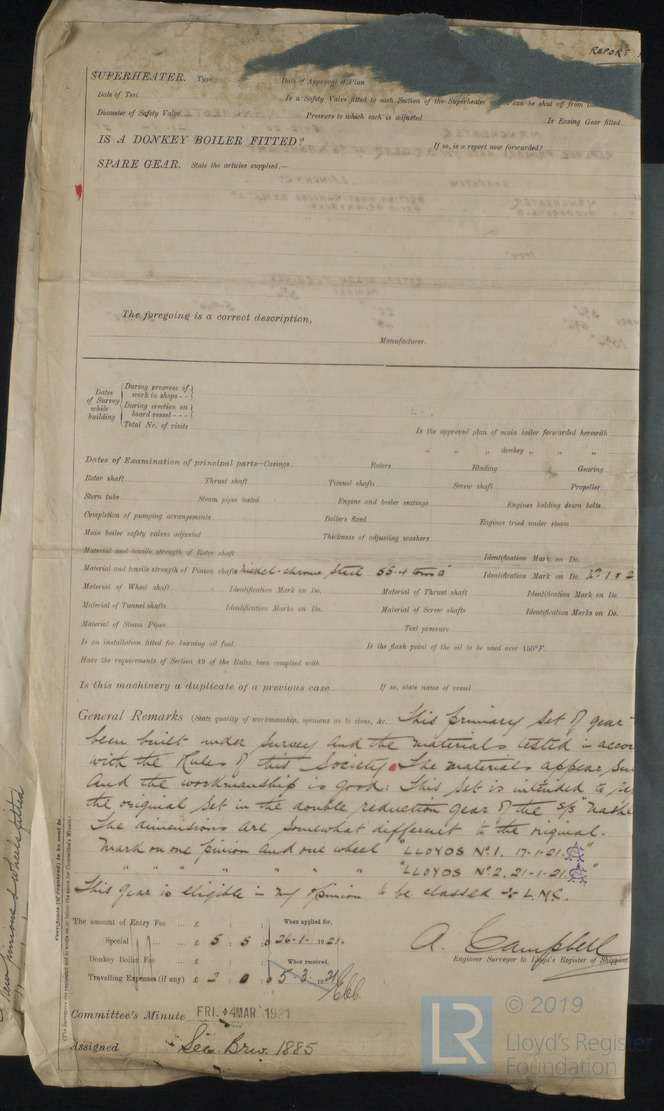 REPORT
SUPERHEATER. Type Date of Approval of Plan
Date of Test Is a Safety Valve fitted to each Section of the Superheater can be shut off from
Diameter of Safety Valve Pressure to which each is adjusted Is Easing Gear fitted
IS A DONKEY BOILER FITTED? If so, is a report now forwarded?
SPARE GEAR. State the articles supplied:—
The foregoing is a correct description,
Manufacturer.
Dates of Survey while building
During progress of work in shops - -
During erection on board vessel - - -
Total No. of visits
Is the approved plan of main boiler forwarded herewith
" " " donkey " " "
Dates of Examination of principal parts—Casings Rotors Blading Gearing
Rotor shaft Thrust shaft Tunnel shafts Screw shaft Propeller
Stern tube Steam pipes tested Engine and boiler seatings Engines holding down bolts
Completion of pumping arrangements Boilers fixed Engines tried under steam
Main boiler safety valves adjusted Thickness of adjusting washers
Material and tensile strength of Rotor shaft Identification Mark on Do.
Material and tensile strength of Pinion shafts nickel-chrome steel 55.4 tons □" Identification Mark on Do. No 1 & 2
Material of Wheel shaft Identification Mark on Do. Material of Thrust shaft Identification Mark on Do.
Material of Tunnel shafts Identification Marks on Do. Material of Screw shafts Identification Marks on Do.
Material of Steam Pipes Test pressure
Is an installation fitted for burning oil fuel Is the flash point of the oil to be used over 150°F.
Have the requirements of Section 49 of the Rules been complied with
Is this machinery a duplicate of a previous case If so, state name of vessel
General Remarks (State quality of workmanship, opinions as to class, &c. This primary set of gear
been built under survey and the materials tested in accor
with the Rules of this Society. The materials appear
and the workmanship is good: This set is intended to
the original set in the double reduction gear of the S/S
The dimensions are somewhat different to the original.
Mark on one pinion and one wheel "LLOYDS No 1. 17-1-21. "
" " " " " " " "LLOYDS No 2. 21-1-21. "
This gear is eligible in my opinion to be classed + LMC.
The amount of Entry Fee ... £ : : When applied for,
Special ... £ 5 : 5 : 0 26.1.1921.
Donkey Boiler Fee £ : : When received,
Travelling Expenses (if any) £ 2 : 0 : 0 5.3.1921
A. Campbell
Engineer Surveyor to Lloyd's Register of Shipping
Committee's Minute FRI. 4 MAR 1921
Assigned See 1885
new pinions & wheels fitted
© 2019
LR Lloyd's Register
Foundation